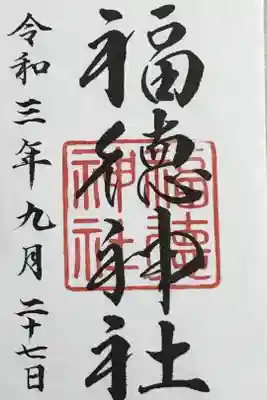 福徳神社
福徳神社
令和三年九月二十七日